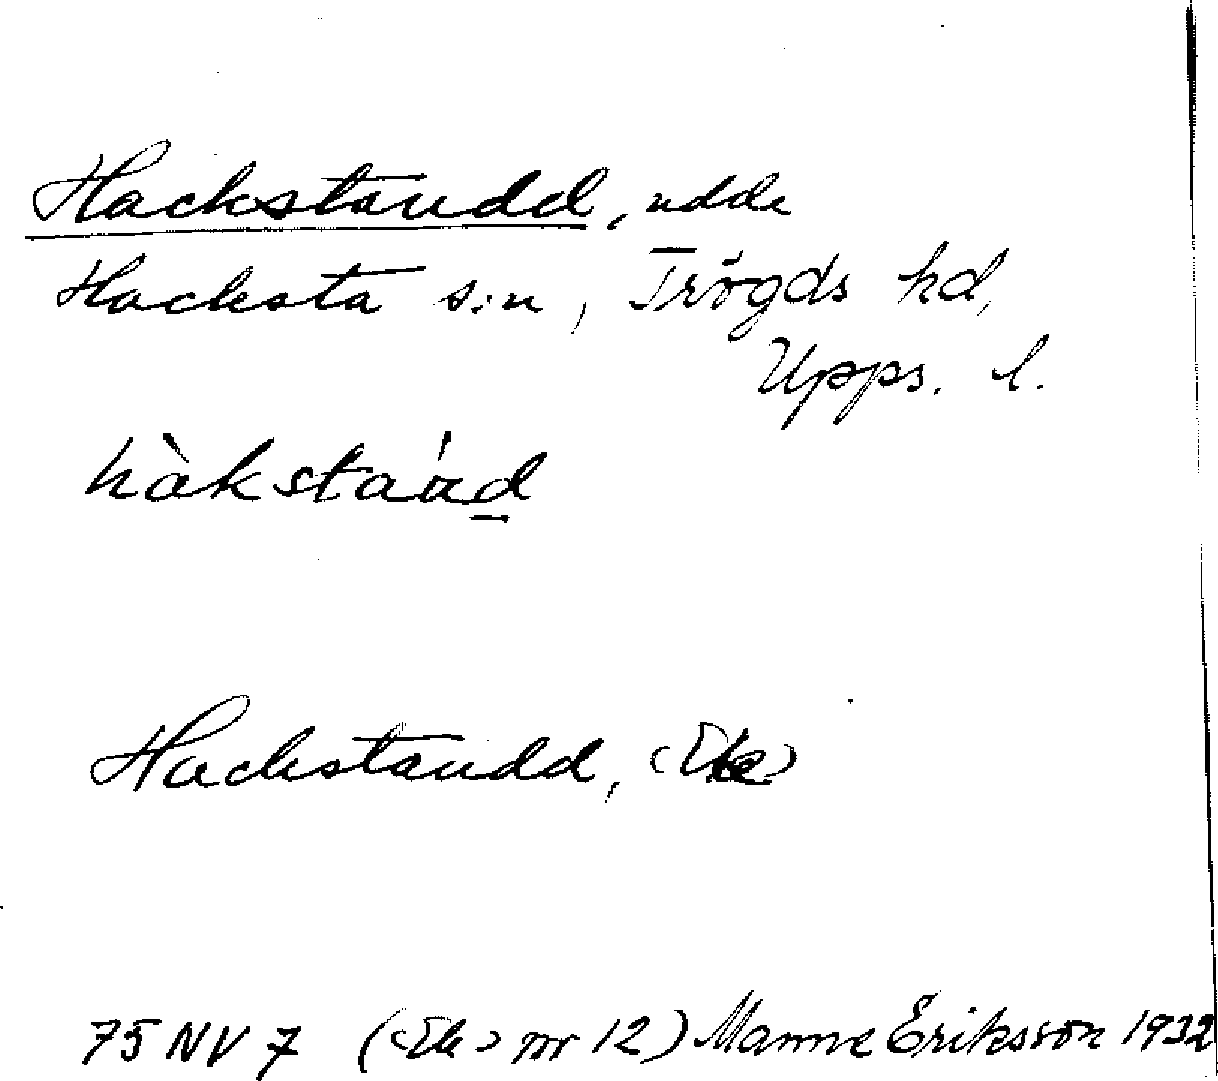 Hackstaudd, udde
Hacksta s:n, Trögds hd,
Upps. l.
hàkstáud
Hackstaudd, (Ek)
75 NV 7 (<Ek> nr 12) Manne Eriksson 1932